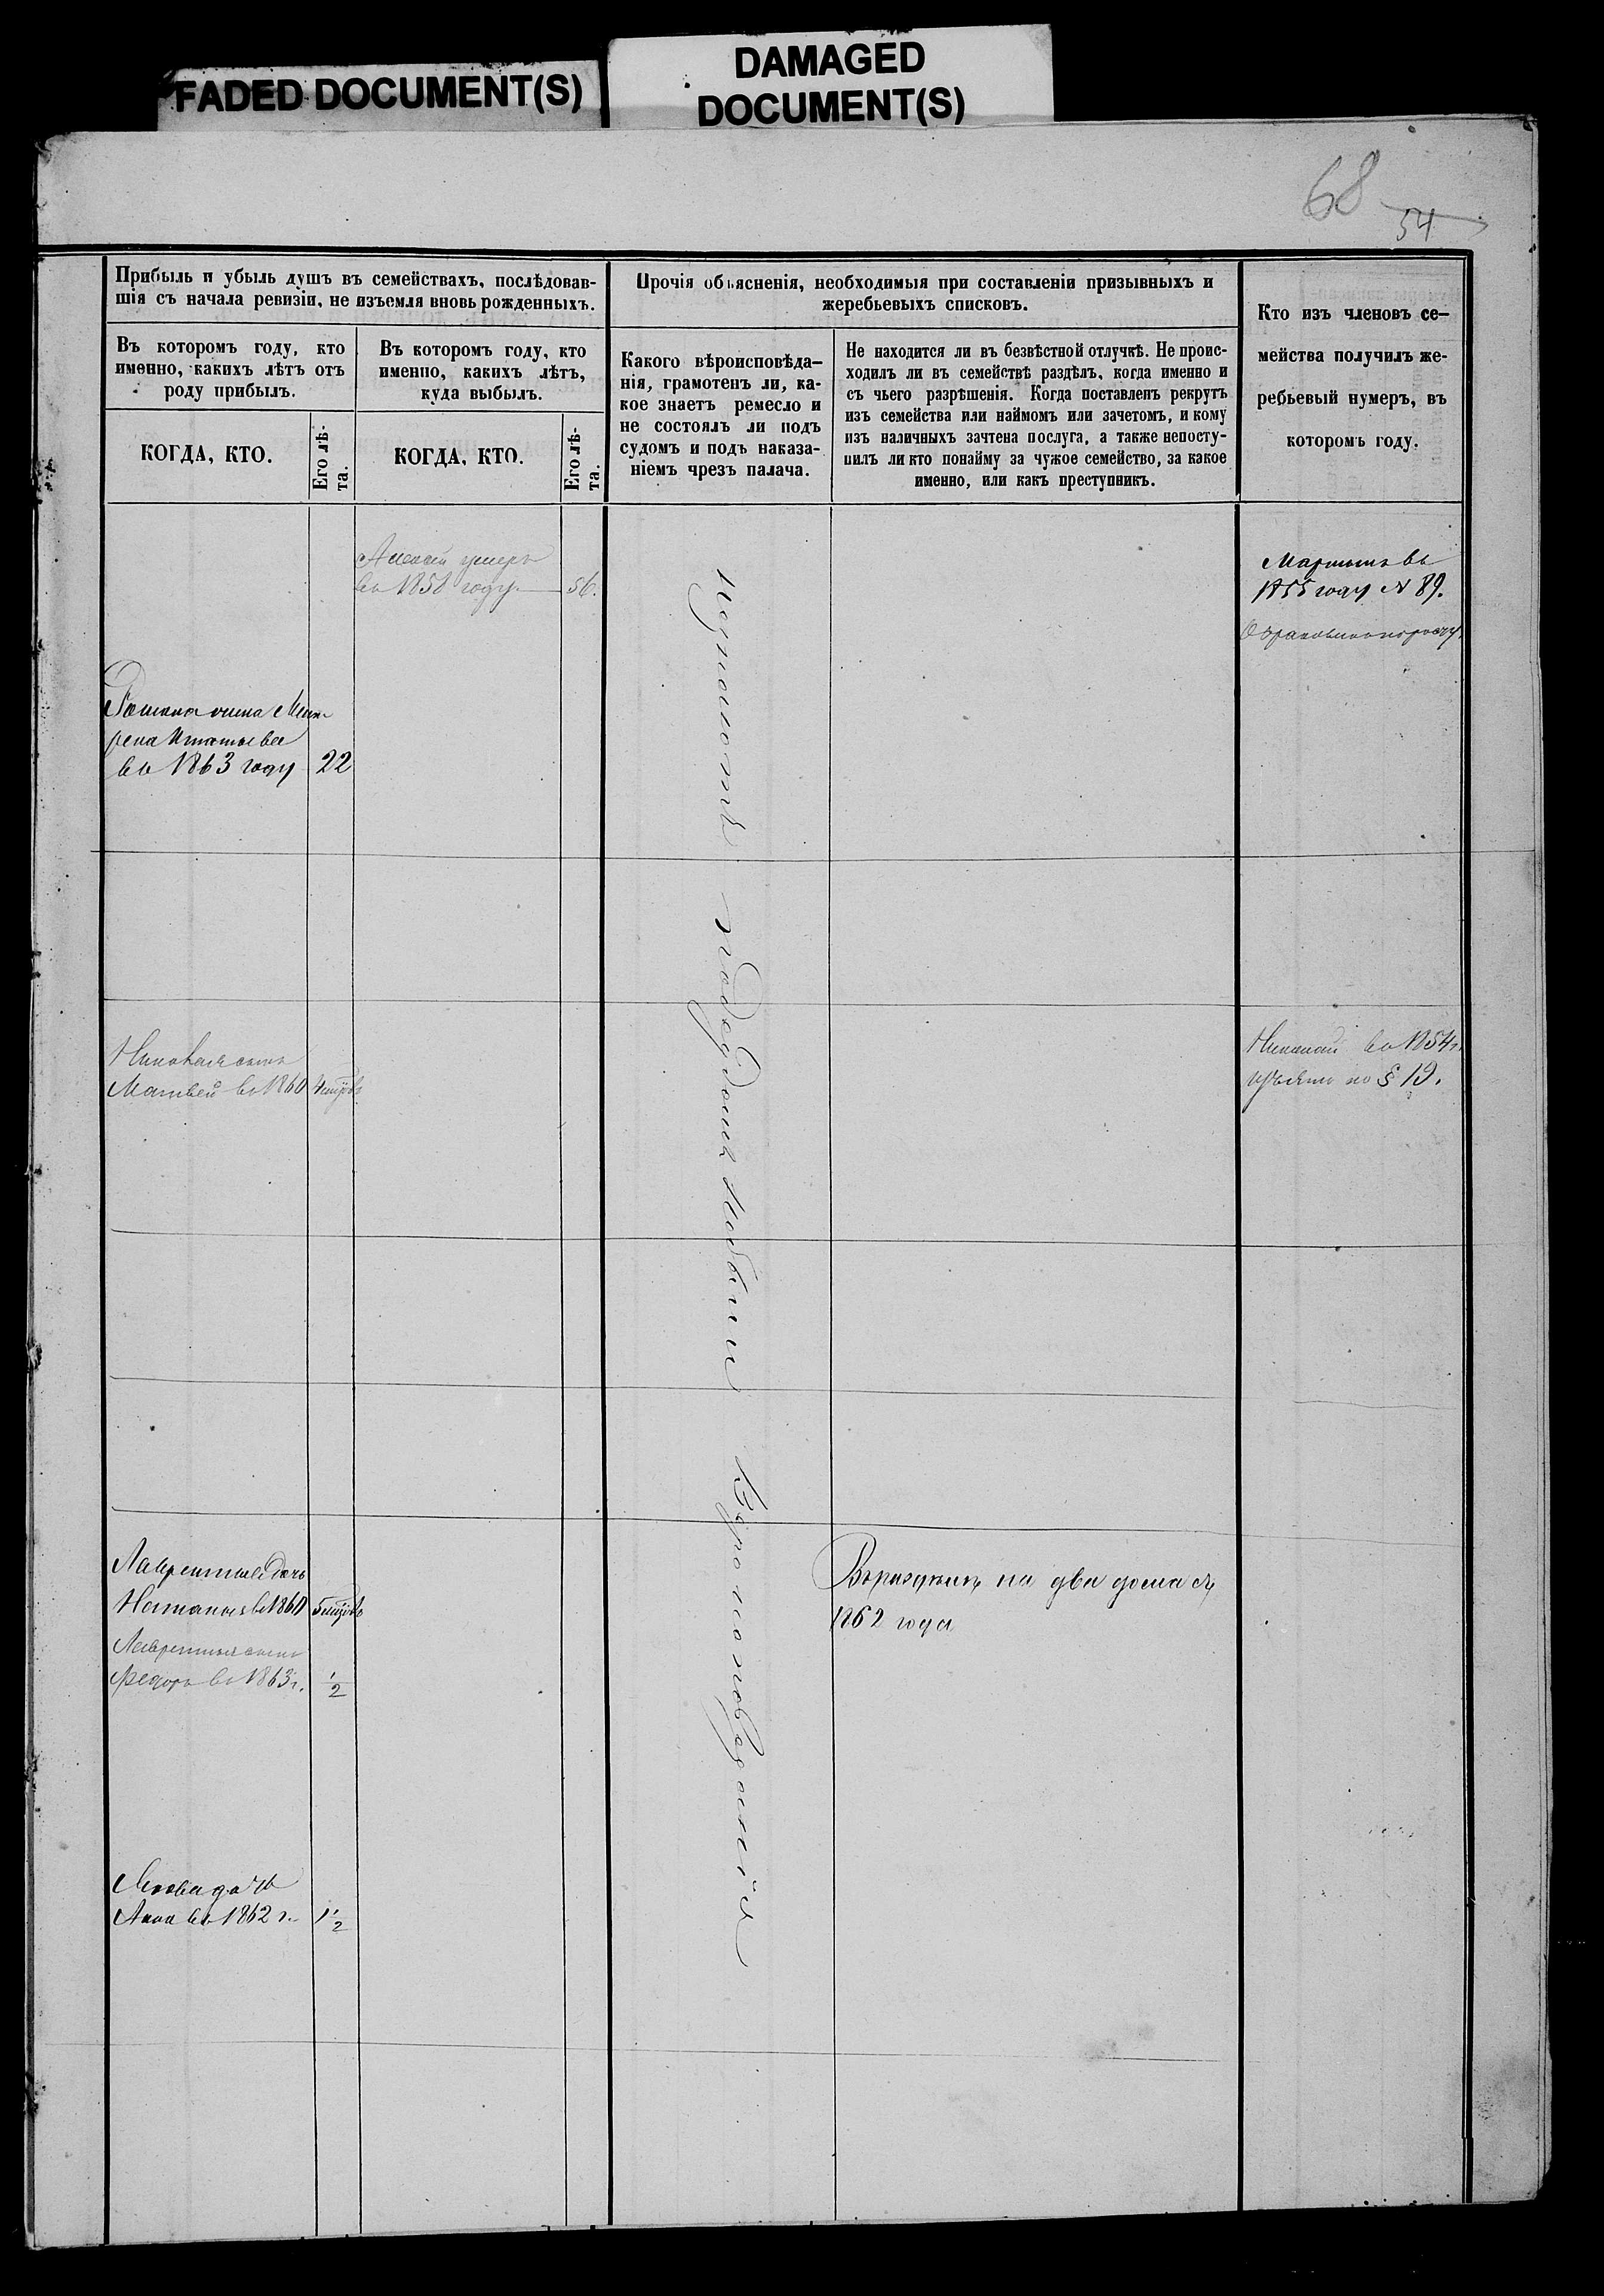 FADED DOCUMENT(S)
DAMAGED
DOCUMENT(S)
68
54
Прибыль и убыль душъ въ семействахъ, послѣдовав-
шія съ начала ревизіи, не изъемля вновь рожденныхъ.
Въ которомъ году, кто
именно, какихъ лѣтъ отъ
роду прибылъ.
КОГДА, КТО.
Его лѣ-
та.
Въ которомъ году, кто
именно, какихъ лѣтъ,
куда выбылъ.
КОГДА, КТО.
Его лѣ-
та.
Прочія объясненія, необходимыя при составленіи призывныхъ и
жеребьевыхъ списковъ.
Какого вѣроисповѣда-
нія, грамотенъ ли, ка-
кое знаетъ ремесло и
не состоялъ ли подъ
судомъ и подъ наказа-
ніемъ чрезъ палача.
Не находится ли въ безвѣстной отлучкѣ. Не проис-
ходилъ ли въ семействѣ раздѣлъ, когда именно и
съ чьего разрѣшенія. Когда поставленъ рекрутъ
изъ семейства или наймомъ или зачетомъ, и кому
изъ наличныхъ зачтена послуга, а также непосту-
пилъ ли кто понайму за чужое семейство, за какое
именно, или какъ преступникъ.
Кто изъ членовъ се-
мейства получилъ же-
ребьевый нумеръ, въ
которомъ году.
Алексѣй умеръ
въ 1858 году 56.
Мартынъ въ
1855 году № 89.
Романа жена
Игнатьева
въ 1863 году 22
Николая сынъ
Матвей въ 1860
Николай въ 1854 г.
изъятъ по § 19.
вѣроисповѣданія
Лаврентія дочь
Наталья въ 1860
Лаврентія сынъ
Федоръ въ 1863 г. 1/2
въ раздѣлѣ на два дома съ
1862 года
дочь
Анна въ 1862 г. 1 1/2